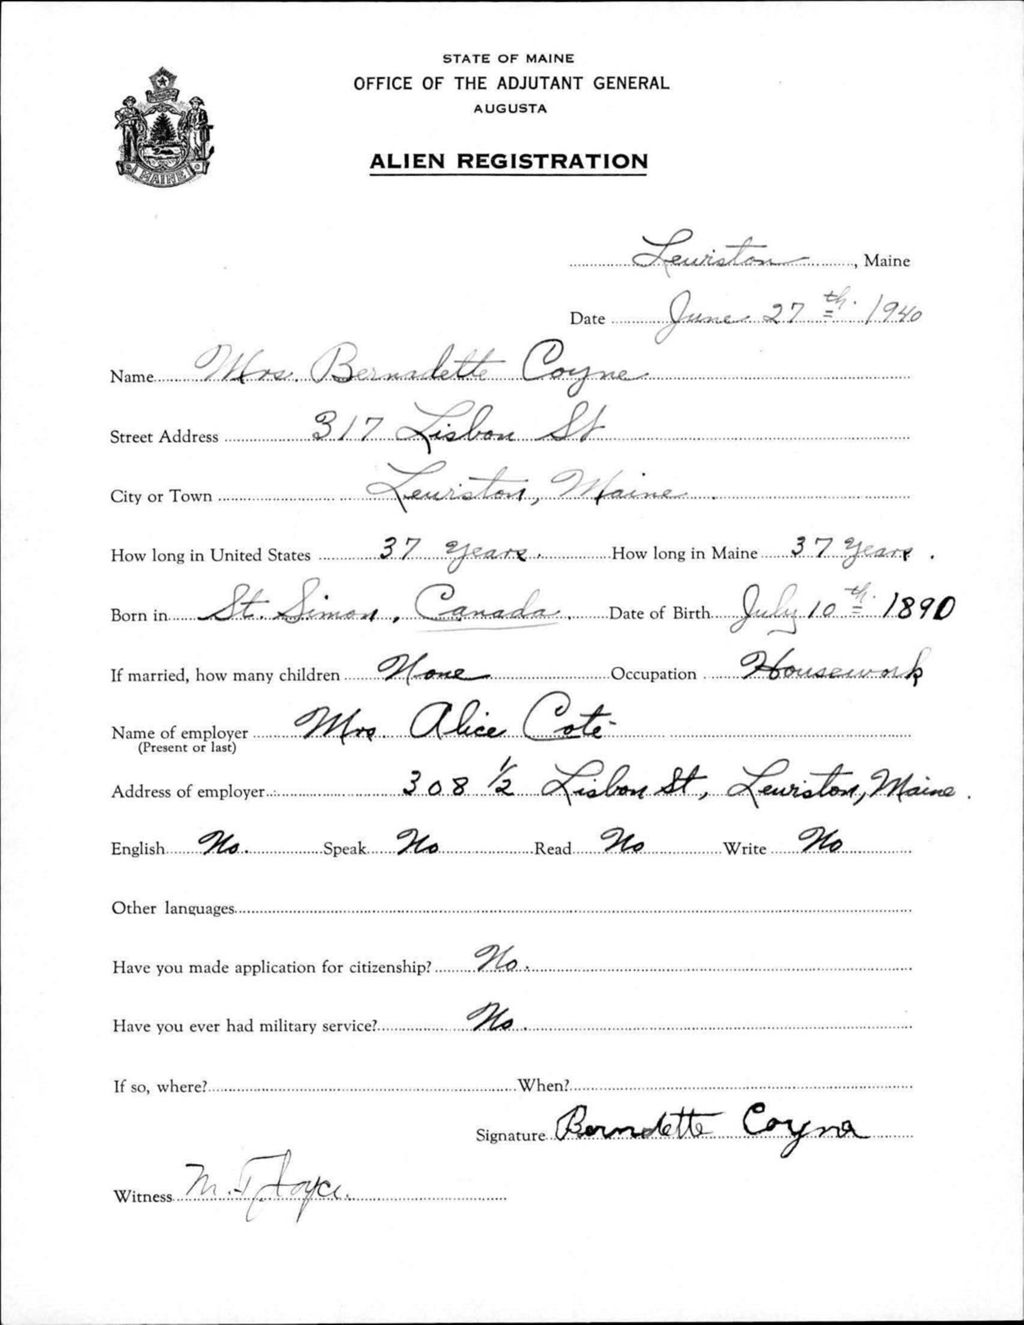 STATE OF MAINE
OFFICE OF THE ADJUTANT GENERAL
AUGUSTA
ALIEN REGISTRATION
MAINE
Lewiston, Maine
Date June 27th 1940
Name Mrs. Bernadette Coyne
Street Address 317 Lisbon St
City or Town Lewiston, Maine.
How long in United States 37 years. How long in Maine 37 years.
Born in St. Simon, Canada. Date of Birth July 10th 1890
If married, how many children None Occupation Housework
Name of employer Mrs. Alice Coté
(Present or last)
Address of employer 308 1/2 Lisbon St, Lewiston, Maine.
English No. Speak No Read No Write No
Other languages
Have you made application for citizenship? No.
Have you ever had military service? No.
If so, where? When?
Signature Berndette Coyne
Witness M.